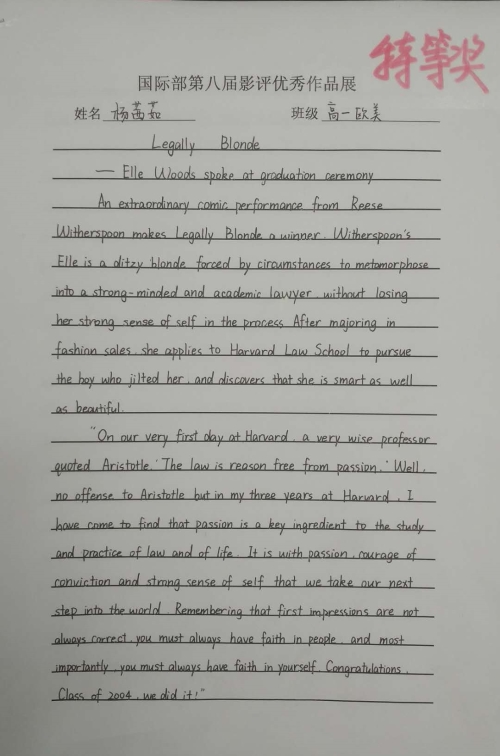 特等奖
国际部第八届影评优秀作品展
姓名 杨茜茹 班级 高一欧美
Legally Blonde
— Elle Woods spoke at graduation ceremony
An extraordinary comic performance from Reese
Witherspoon makes Legally Blonde a winner. Witherspoon's
Elle is a ditzy blonde forced by circumstances to metamorphose
into a strong-minded and academic lawyer, without losing
her strong sense of self in the process. After majoring in
fashion sales, she applies to Harvard Law School to pursue
the boy who jilted her, and discovers that she is smart as well
as beautiful.
"On our very first day at Harvard, a very wise professor
quoted Aristotle. 'The law is reason free from passion.' Well,
no offense to Aristotle but in my three years at Harvard, I
have come to find that passion is a key ingredient to the study
and practice of law and of life. It is with passion, courage of
conviction and strong sense of self that we take our next
step into the world. Remembering that first impressions are not
always correct, you must always have faith in people, and most
importantly, you must always have faith in yourself. Congratulations,
Class of 2004, we did it!"